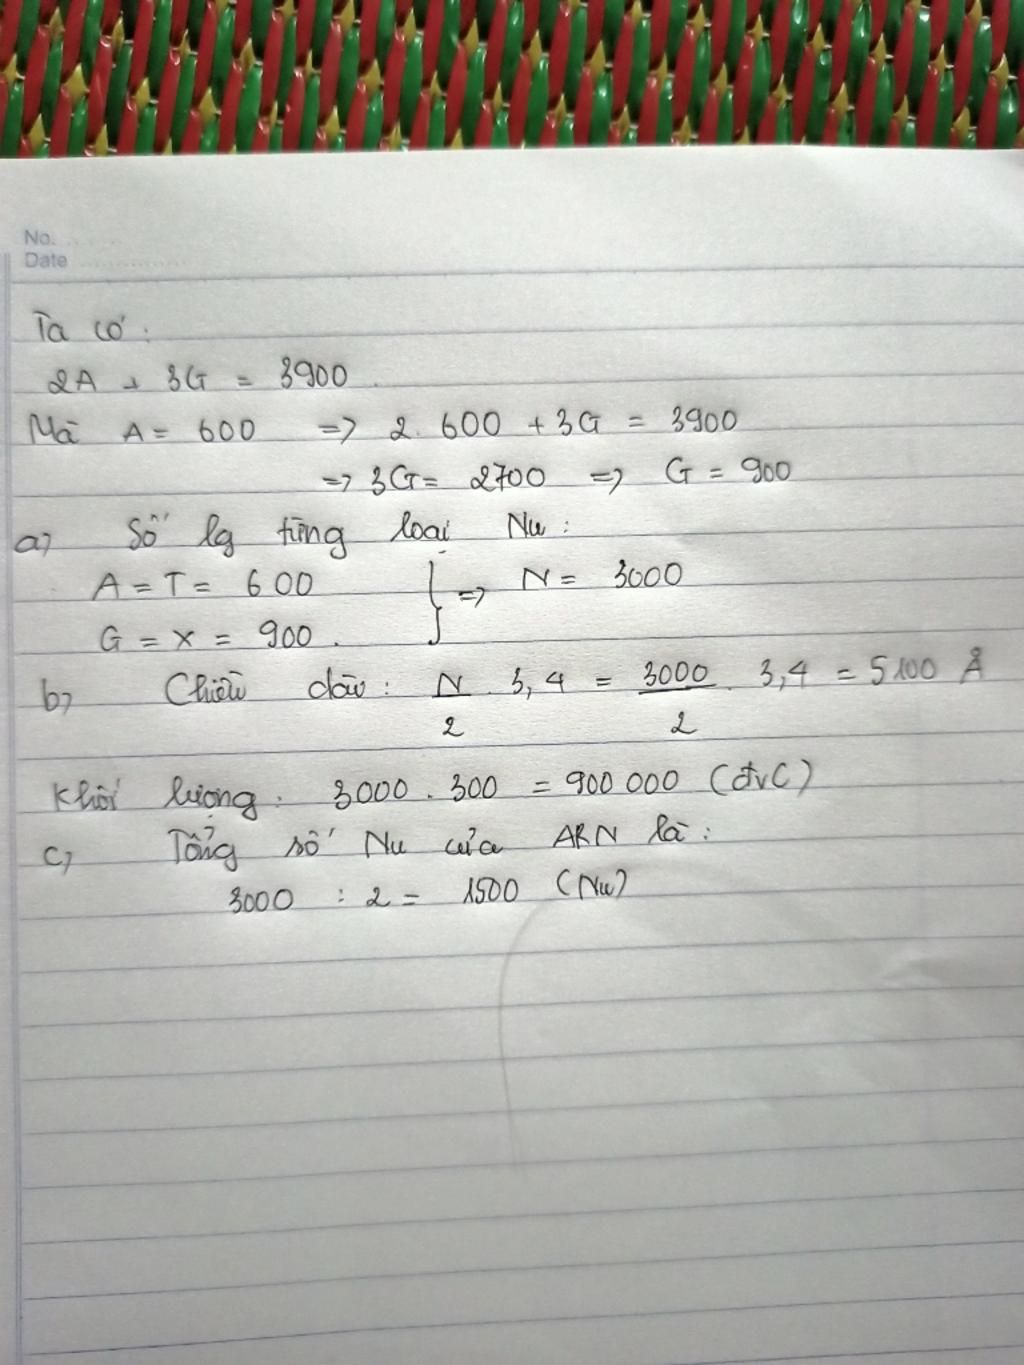 No.
Date
Ta có:
2A + 3G = 3900
Mà A = 600 => 2. 600 + 3G = 3900
=> 3G = 2700 => G = 900
a, Số lg từng loại Nu:
A = T = 600 } => N = 3000
G = X = 900.
b, Chiều dài: N/2 . 3,4 = 3000/2 . 3,4 = 5100 Å
Khối lượng: 3000 . 300 = 900 000 (đvC)
c, Tổng số Nu của ARN là:
3000 : 2 = 1500 (Nu)